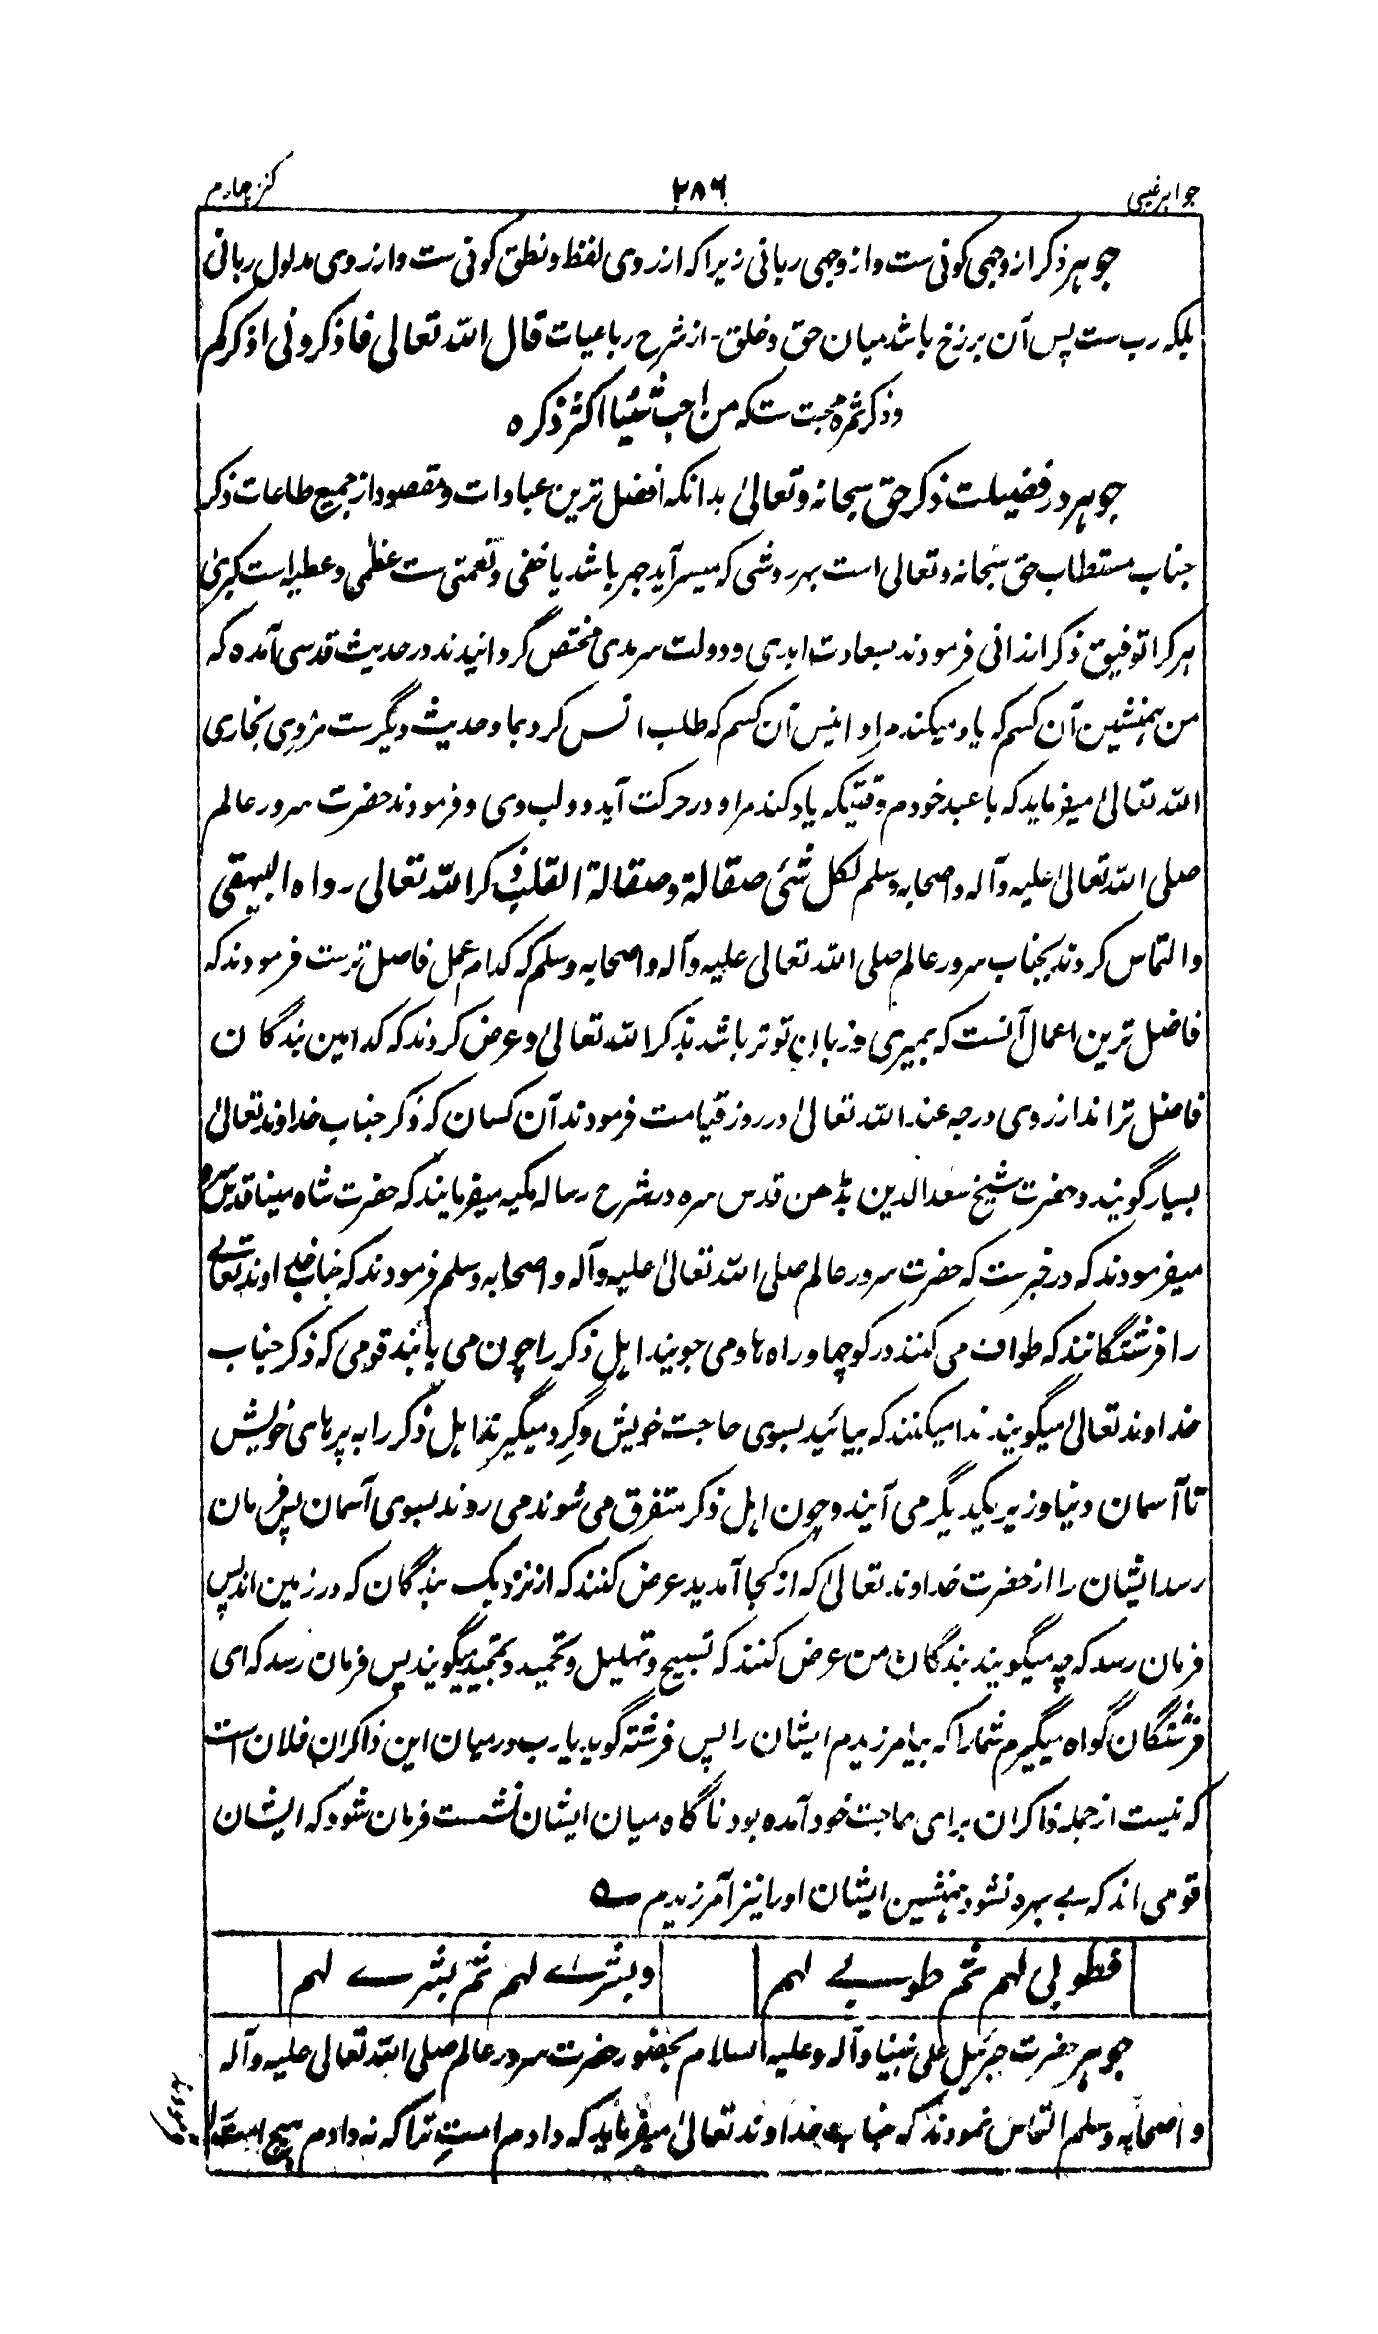 جواهر غیبی
۲۸۶
کنز چهارم
جوهر ذکر از وجهی کونی ست و از وجهی ربانی زیرا که از روی لفظ و نطق کونی ست و از روی مدلول ربانی
بلکه رب ست پس آن برزخ باشد میان حق و خلق - از شرح رباعیات قال الله تعالی فاذکرونی اذکرکم
و ذکر ثمره محبت ست که من احب شیئا اکثر ذکره
جوهر در فضیلت ذکر حق سبحانه و تعالیٰ بدانکه افضل ترین عبادات و مقصود از جمیع طاعات ذکر
جناب مستطاب حق سبحانه و تعالی است بهر روشی که میسر آید جهر باشد یا خفی و نعمتی ست عظمی و عطیه است کبریٰ
هر کرا توفیق ذکر ارزانی فرمودند بسعادت ابدی و دولت سرمدی مختص گردانیدند در حدیث قدسی آمده که
من همنشین آن کسم که یاد میکند مرا و انیس آن کسم که طلب انس کرد بما و حدیث دیگر ست مروی بخاری
الله تعالیٰ میفرماید که با عبد خودم وقتیکه یاد کند مرا و در حرکت آید دو لب وی و فرمودند حضرت سرور عالم
صلی الله تعالیٰ علیه و آله و اصحابه وسلم لکل شئی صقالة و صقالة القلب ذکر الله تعالی رواه البیهقی
و التماس کردند بجناب سرور عالم صلی الله تعالی علیه و آله و اصحابه وسلم که کدام عمل فاضل ترست فرمودند که
فاضل ترین اعمال آنست که بمیری و زبان تو تر باشد بذکر الله تعالیٰ و عرض کردند که کدامین بندگان
فاضل تر اند از روی درجه عند الله تعالیٰ در روز قیامت فرمودند آن کسان که ذکر جناب خداوند تعالیٰ
بسیار گویند و حضرت شیخ سعد الدین بڈهن قدس سره در شرح رساله مکیه میفرمایند که حضرت شاه مینا قدس سره
میفرمودند که در خبرست که حضرت سرور عالم صلی الله تعالیٰ علیه و آله و اصحابه وسلم فرمودند که جناب خداوند تعالے
را فرشتگانند که طواف می کنند در کوچها و راه ها و می جویند اهل ذکر را چون می یابند قومی که ذکر جناب
خداوند تعالیٰ میگویند ندا میکنند که بیائید بسوی حاجت خویش و گرد میگیرند اهل ذکر را به پرهای خویش
تا آسمان دنیا و زیر یکدیگر می آیند و چون اهل ذکر متفرق می شوند می روند بسوی آسمان پس فرمان
رسد ایشان را از حضرت خداوند تعالیٰ که از کجا آمدید عرض کنند که از نزدیک بندگان که در زمین اند پس
فرمان رسد که چه میگویند بندگان من عرض کنند که تسبیح و تهلیل و تحمید و تمجید میگویند پس فرمان رسد که ای
فرشتگان گواه میگیرم شما را که بیامرزیدم ایشان را پس فرشته گوید یا رب در میان این ذاکران فلان است
که نیست از جمله ذاکران برای حاجت خود آمده بود ناگاه میان ایشان نشست فرمان شود که ایشان
قومی اند که بے بهره نشود همنشین ایشان او را نیز آمرزیدم ۵
فطوبی لهم ثم طوبے لهم
و بشرے لهم ثم بشرے لهم
جوهر حضرت جبرئیل علی نبینا و آله و علیه السلام بحضور حضرت سرور عالم صلی الله تعالی علیه و آله
و اصحابه وسلم التماس نمودند که جناب خداوند تعالیٰ میفرماید که دادم امت ترا که نه دادم هیچ امت